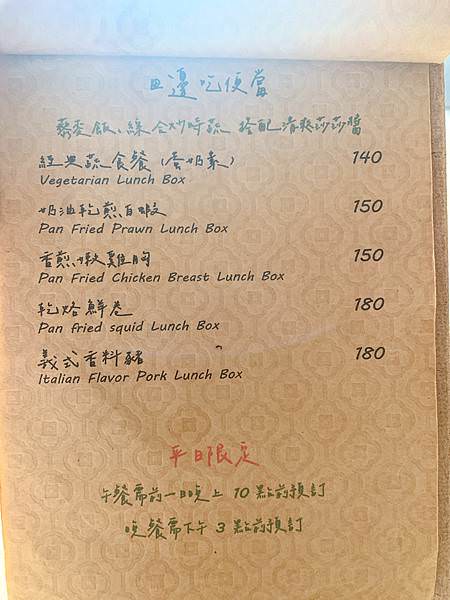 田邊吃便當
藜麥飯、綜合炒時蔬 搭配清爽莎莎醬
經典蔬食餐(蛋奶素) 140
Vegetarian Lunch Box
奶油乾煎白蝦 150
Pan Fried Prawn Lunch Box
香煎嫩雞胸 150
Pan Fried Chicken Breast Lunch Box
乾烙鮮卷 180
Pan fried squid Lunch Box
義式香料豬 180
Italian Flavor Pork Lunch Box
平日限定
午餐需前一日晚上 10 點前預訂
晚餐需下午 3 點前預訂